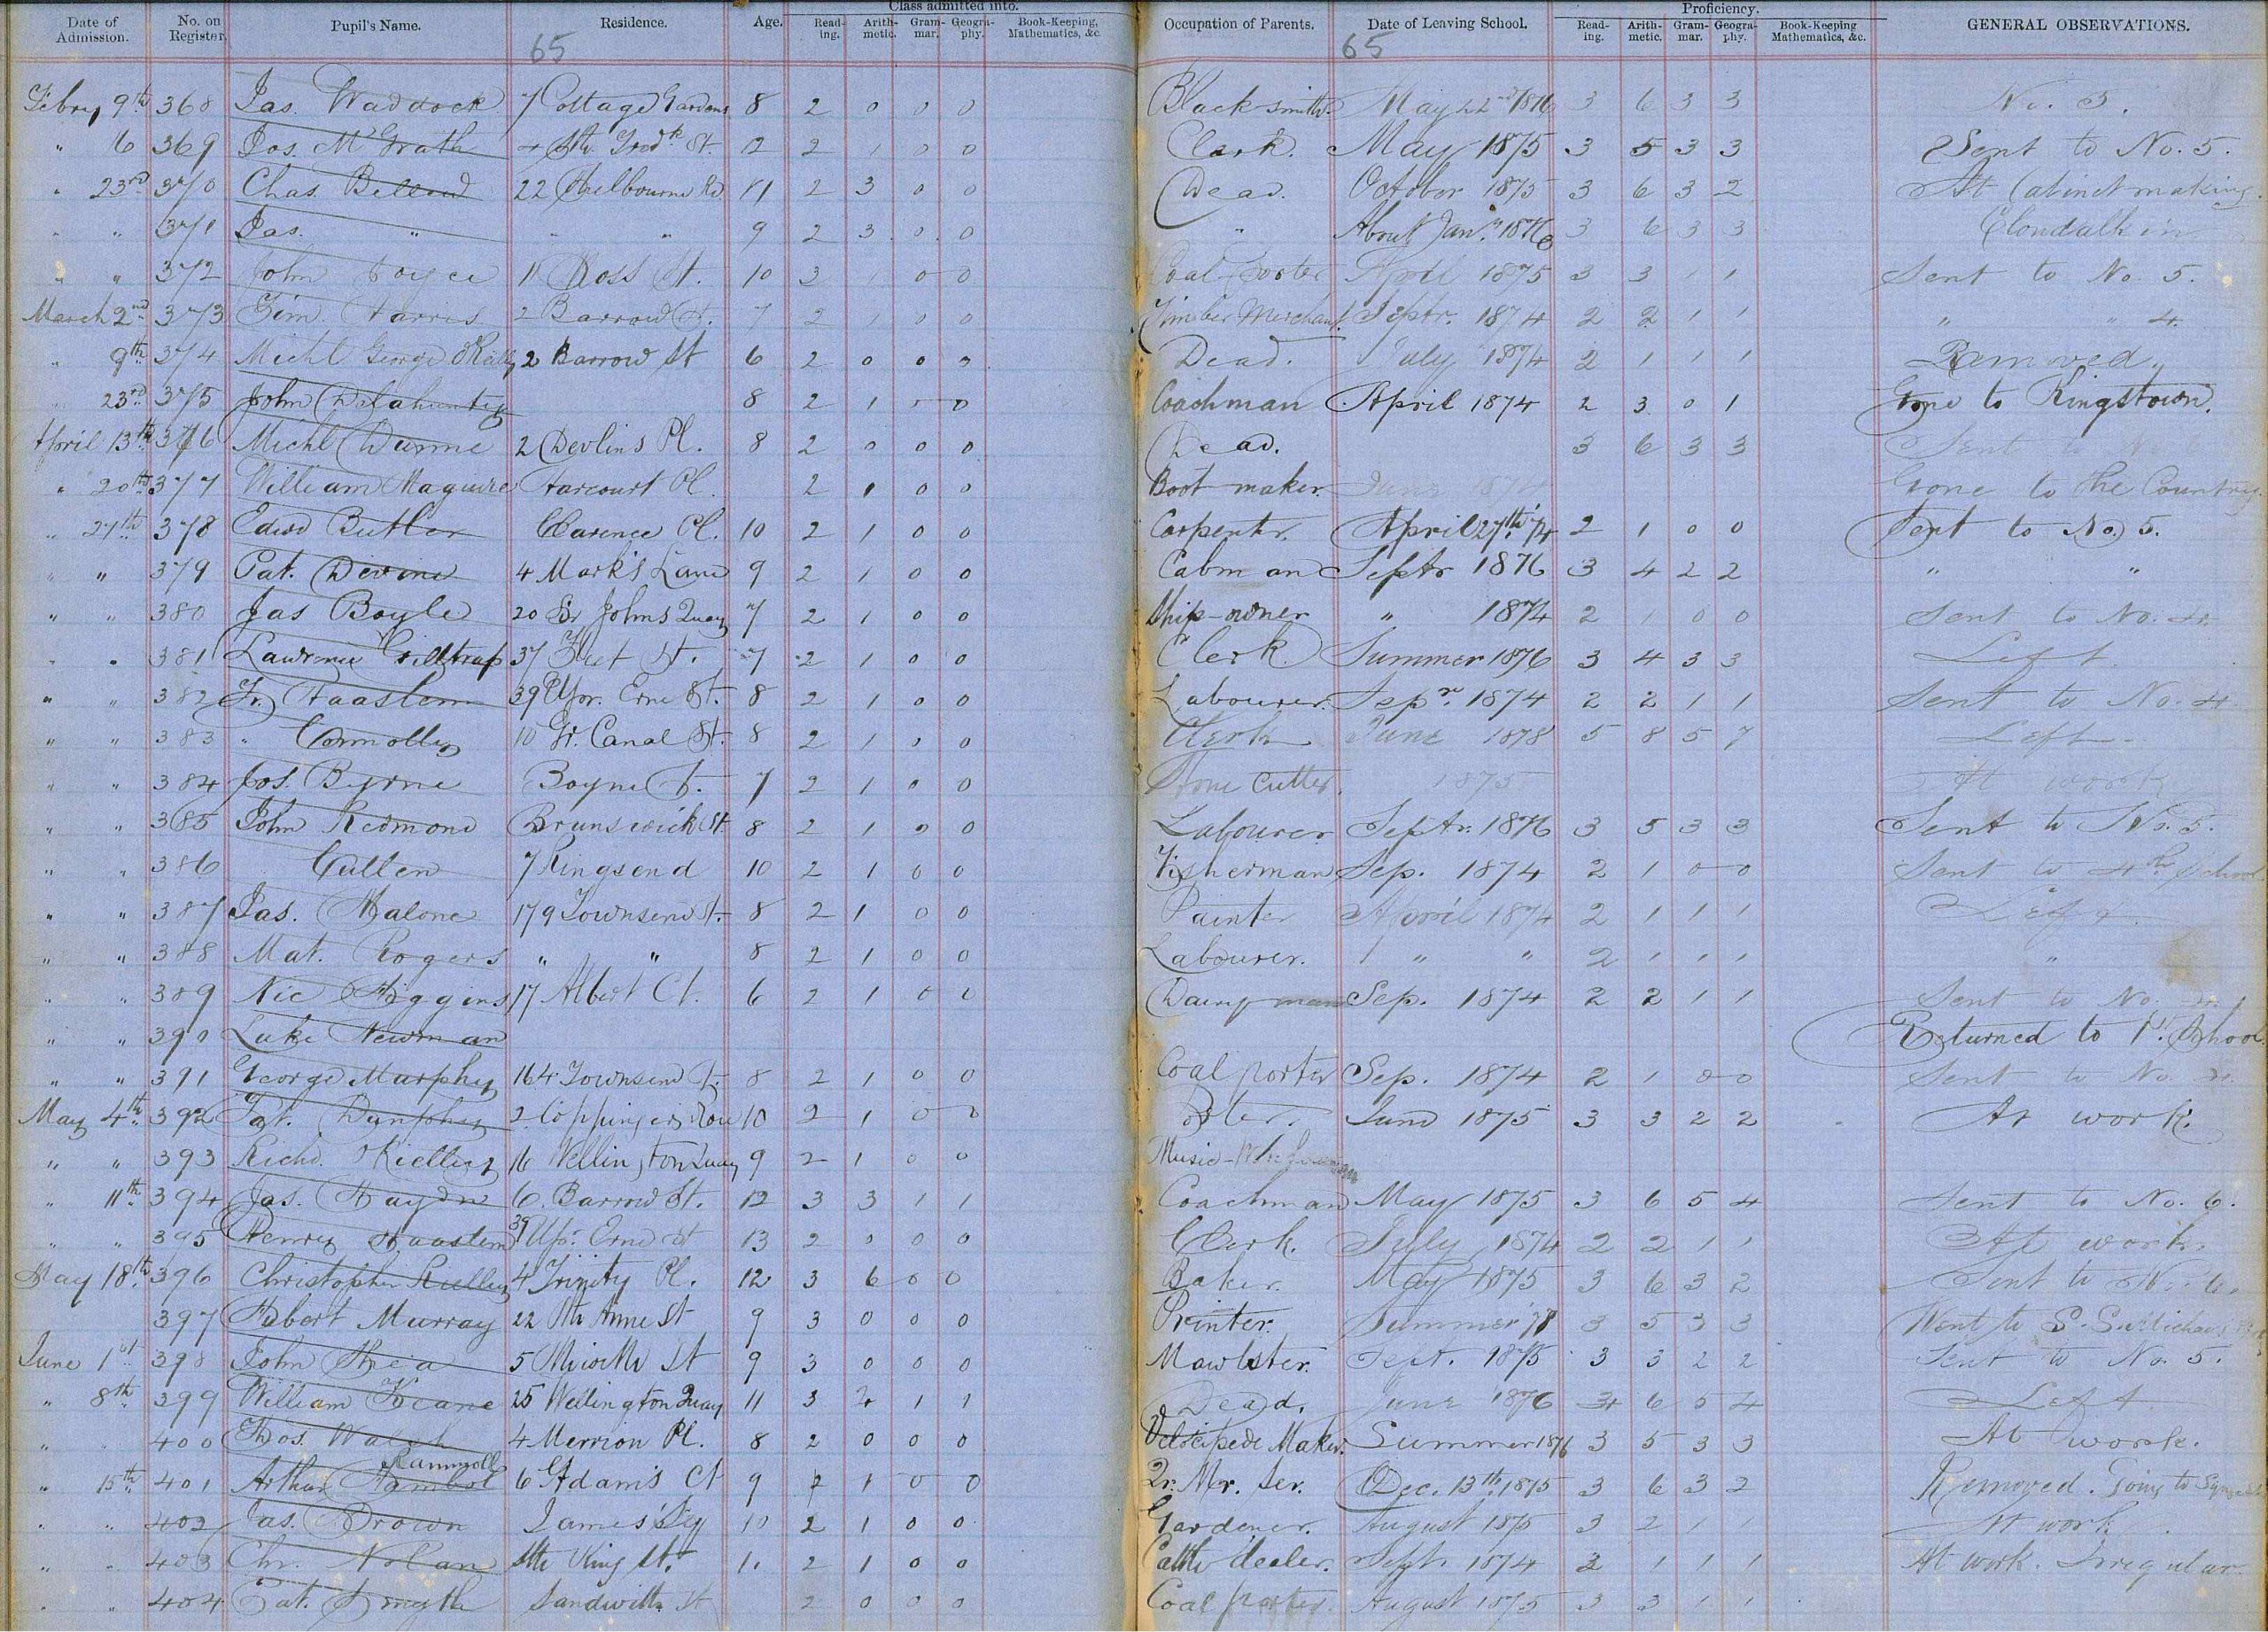 Date of Admission. No. on Register. Pupil's Name. Residence. Age. Class admitted into. Reading. Arithmetic. Grammar. Geography. Book-Keeping, Mathematics, &c. Occupation of Parents. Date of Leaving School. Proficiency. Reading. Arithmetic. Grammar. Geography. Book-Keeping Mathematics, &c. GENERAL OBSERVATIONS.
65 65
Febry 9th 368 Jas. Waddock 7 Cottage Gardens 8 2 0 0 0 Blacksmith. May 22nd 1876 3 6 3 3 No. 3.
" 6 369 Jos. McGrath 4 Sth. Grod. St. 12 2 1 0 0 Clerk. May 1875 3 5 3 3 Sent to No. 5.
" 23rd 370 Chas. 22 Shelbourne Rd 11 2 3 0 0 Dead. October 1875 3 6 3 2 At Cabinet making
" " 371 Jas. " " " 9 2 3 0 0 " About Jan. 1876 3 6 3 3 Clondalkin
" " 372 John Joyce 11 Ross St. 10 3 1 0 0 Coal Porter April 1875 3 3 1 1 Sent to No. 5.
March 2nd 373 Tim. Harris 2 Barrow St. 7 2 1 0 0 Timber Merchant. Septr. 1874 2 2 1 1 " " 4.
" 9th 374 Michl. George OReilly 2 Barrow St 6 2 0 0 0 Dead. July 1874 2 1 1 1 Removed.
" 23rd 375 John Delahunty 8 2 1 0 0 Coachman April 1874 2 3 0 1 Gone to Kingstown.
April 13th 376 Michl Dunne 2 Devlins Pl. 8 2 0 0 0 Dead. 3 6 3 3 Sent to No
" 20th 377 William Maguire Harcourt Pl. 2 1 0 0 Boot maker. June 1874 Gone to the Country
" 27th 378 Edwd Butler Clarence Pl. 10 2 1 0 0 Carpenter. April 27th '74 2 1 0 0 Sent to No. 5.
" " 379 Pat. Devine 4 Mark's Lane 9 2 1 0 0 Cabman Septr 1876 3 4 2 2 " "
" " 380 Jas Boyle 20 Sir Johns Quay 7 2 1 0 0 Ship-owner " 1874 2 1 0 0 Sent to No. 4.
" " 381 Lawrence Gilltrap 37 Fleet St. 7 2 1 0 0 Clerk. Summer 1876 3 4 3 3 Left.
" " 382 Fr. Haaslem 39 Upr. Erne St. 8 2 1 0 0 Labourer. Sepr. 1874 2 2 1 1 Sent to No. 4.
" " 383 " Connolly 10 Gr. Canal St. 8 2 1 0 0 Clerk June 1878 5 8 5 7 Left.
" " 384 Jos. Byrne Boyne St. 7 2 1 0 0 Stone Cutter. 1875 At work
" " 385 John Redmond Brunswick St. 8 2 1 0 0 Labourer Septr. 1876 3 5 3 3 Sent to No. 5.
" " 386 Cullen 7 Ringsend 10 2 1 0 0 Fisherman Sep. 1874 2 1 0 0 Sent to 4th School
" " 387 Jas. Malone 179 Townsend St. 8 2 1 0 0 Painter April 1874 2 1 1 1 Left.
" " 388 Mat. Rogers " " 8 2 1 0 0 Labourer. " " 2 1 1 1 "
" " 389 Nic Higgins 17 Albert Ct. 6 2 1 0 0 Dairyman Sep. 1874 2 2 1 1 Sent to No. 4.
" " 390 Luke Newman Returned to 1st School
" " 391 George Murphy 164 Townsend St. 8 2 1 0 0 Coal porter Sep. 1874 2 1 0 0 Sent to No. 4.
May 4th 392 Pat. Dunphy 2 Coppingers Row 10 2 1 0 0 Porter. June 1875 3 3 2 2 At work.
" " 393 Richd. OReilly 16 Wellington Quay 9 2 1 0 0 Music-
" 11th 394 Jas. Haydn 6. Barrow St. 12 3 3 1 1 Coachman May 1875 3 6 5 4 Sent to No. 6.
" " 395 Henry Haaslem 39 Upr. Erne St 13 2 0 0 0 Clerk. July 1874 2 2 1 1 At work.
May 18th 396 Christopher Reilley 4 Trinity Pl. 12 3 6 0 0 Baker. May 1875 3 6 3 2 Sent to No. 6.
397 Albert Murray 22 Sth Anne St 9 3 0 0 0 Printer. Summer '78 3 5 3 3 Went to S.S. Michael
June 1st 398 John Shea 5 St 9 3 0 0 0 Mawlster. Sept. 1875 3 3 2 2 Sent to No. 5.
" 8th 399 William Keane 25 Wellington Quay 11 3 4 1 1 Dead. June 1876 4 6 5 4 Left
" 400 Thos. Walsh 4 Merrion Pl. 8 2 0 0 0 Velocipede Maker. Summer 1876 3 5 3 3 At work.
Rammoll
" 15th 401 Arthur Hambol 6 Adam's Ct 9 2 1 0 0 Qr. Mr. Ser. Dec. 13th 1875 3 6 3 2 Removed. Going to
" " 402 Jas. Brown James's 10 2 1 0 0 Gardener. August 1875 3 2 1 1 At work.
" " 403 Chr. Nolan Sth King St. 11 2 1 0 0 Cattle dealer. Sept. 1874 2 1 1 1 At work. Irregular.
" " 404 Pat. Smyth Sandwith St 2 0 0 0 Coal porter. August 1875 3 3 1 1